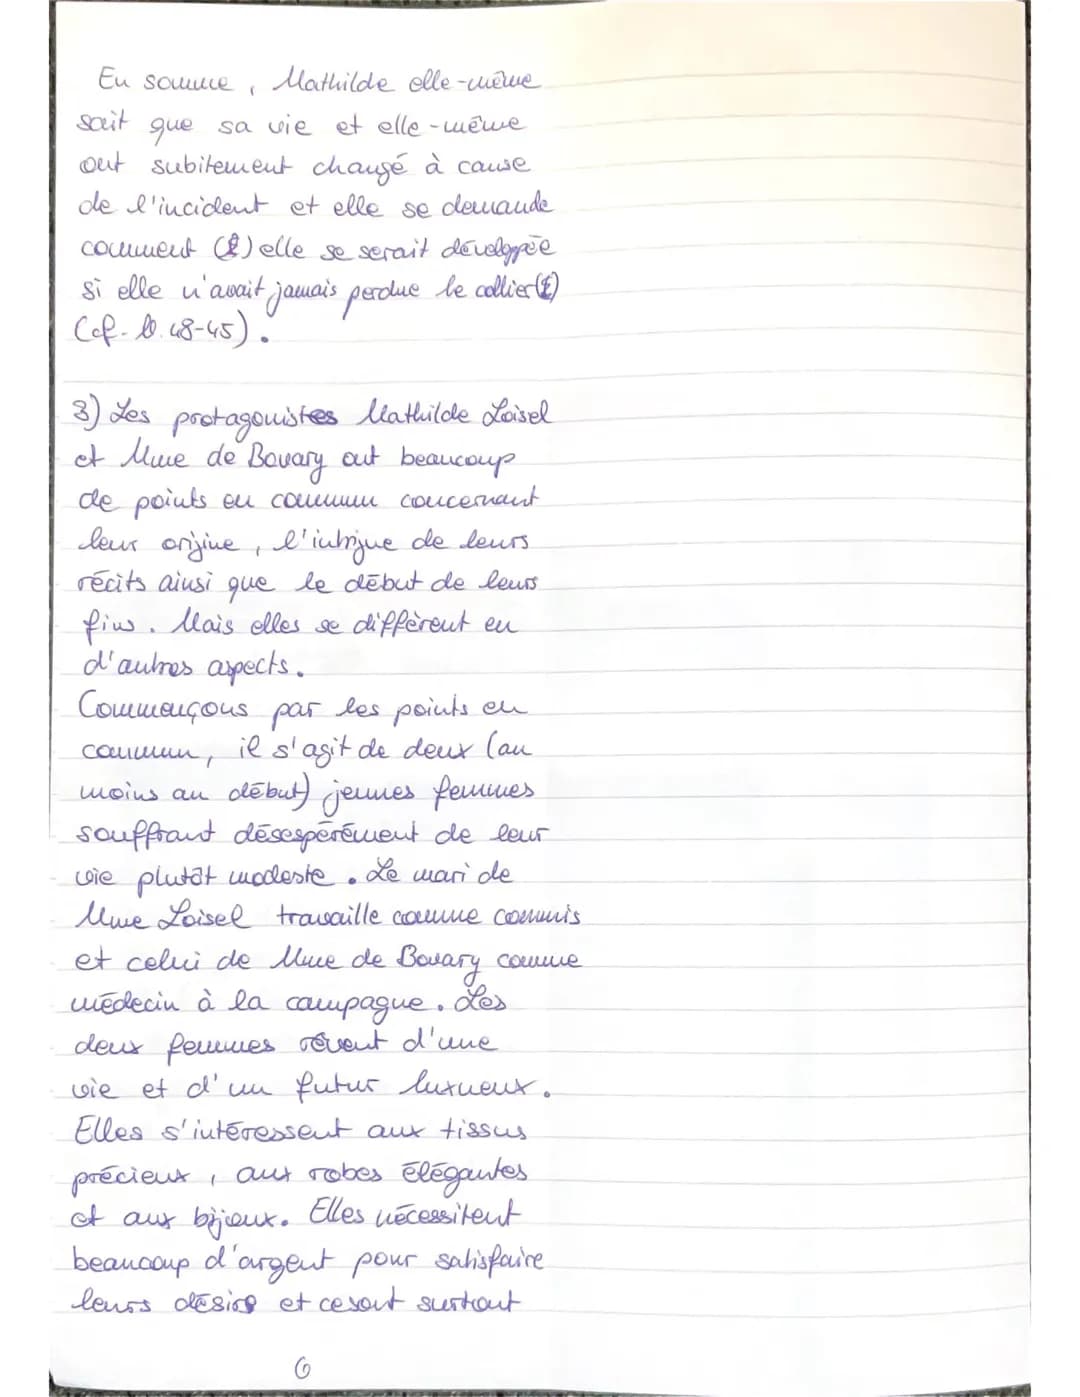 En somme, Mathilde elle-même
sait que sa vie et elle-même
ont subitement changé à cause
de l'incident et elle se demande
comment elle se serait développée
si elle n'avait jamais perdue le collier
(cf. ll. 48-45).
3) Les protagonistes Mathilde Loisel
et Mme de Bovary ont beaucoup
de points en commun concernant
leur origine, l'intrigue de leurs
récits ainsi que le début de leurs
fins. Mais elles se diffèrent en
d'autres aspects.
Commençons par les points en
commun, il s'agit de deux (au
moins au début) jeunes femmes
souffrant désespérément de leur
vie plutôt modeste. Le mari de
Mme Loisel travaille comme commis
et celui de Mme de Bovary comme
médecin à la campagne. Les
deux femmes rêvent d'une
vie et d'un futur luxueux.
Elles s'intéressent aux tissus
précieux, aux robes élégantes
et aux bijoux. Elles nécessitent
beaucoup d'argent pour satisfaire
leurs désirs et ce sont surtout
6